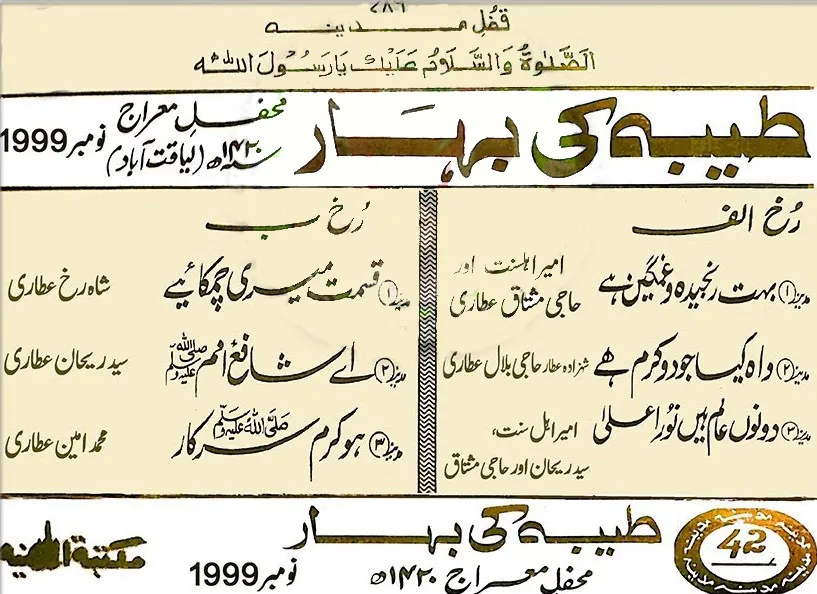 ۷۸۶
قفلِ مدینہ
الصَّلٰوۃُ وَالسَّلَامُ عَلَیْكَ یَارَسُوْلَ اللہ ﷺ
طیبہ کی بہار
محفلِ معراج
سنہ ۱۴۲۰ھ (لیاقت آباد)
نومبر 1999
رُخ الف
مدینہ (۱) بہت رنجیدہ و غمگین ہے امیر اہلسنت اور حاجی مشتاق عطاری
مدینہ (۲) واہ کیا جود و کرم ھے شہزادہ عطار حاجی بلال عطاری
مدینہ (۳) دونوں عالم میں نُورًا علٰی امیر اہل سنت، سید ریحان اور حاجی مشتاق
رُخ ب
مدینہ (۱) قسمت میری چمکائیے شاہ رخ عطاری
مدینہ (۲) اے شافعِ اُمم ﷺ سید ریحان عطاری
مدینہ (۳) ہو کرم سرکار ﷺ محمد امین عطاری
طیبہ کی بہار
محفلِ معراج ۱۴۲۰ھ نومبر 1999
مکتبۃ المدینہ
42